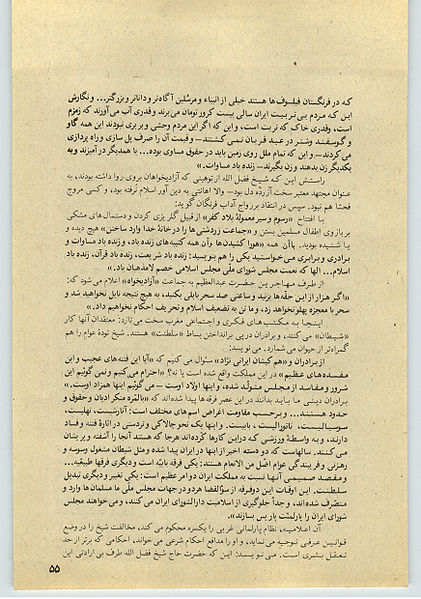 که در فرنگستان فیلسوف‌ها هستند خیلی از انبیاء و مرسلین آگاه‌تر و داناتر و بزرگتر... و نگارش
این که مردم بی‌تربیت ایران سالی بیست کرور تومان می‌برند و قدری آب می‌آورند که زمزم
است، و قدری خاک که تربت است، و این که اگر این مردم وحشی و بربری نبودند این همه گاو
و گوسفند و شتر در عید قربان نمی‌کشتند — و قیمت آن را صرف پل سازی و راه پردازی
می‌کردند — و این که تمام ملل روی زمین باید در حقوق مساوی بوده... با همدیگر درآمیزند و به
یکدیگر زن بدهند و زن بگیرند — زنده باد مساوات.»
راستش این که شیخ فضل الله از توهینی که آزادیخواهان بروی روا داشته بودند، به
عنوان مجتهد معتبر سخت آزرده دل بود — والا اهانتی به دین آور اسلام نرفته بود، و کسی مروج
فحشا هم نبود. سپس در انتقاد بر رواج آداب فرنگان گوید:
با افتتاح «رسوم و سیر معمولهٔ بلاد کفر» از قبیل گل ریزی کردن و دستمال‌های مشکی
بر بازوی اطفال مسلمین بستن و «جماعت زردشتی‌ها را در خانهٔ خدا وارد ساختن» هیچ دیده و
یا شنیده بودید. یا آن همه «هورا کشیدن‌ها و آن همه کتیبه‌های زنده باد، و زنده باد مساوات و
برادری و برابری می‌خواستید یکی را هم بنویسید: زنده باد شریعت، زنده باد قرآن، زنده باد
اسلام... الها که نعمت مجلس شورای ملی مجلس اسلامی خصم لامذهبان باد.»
از طرف مهاجرین حضرت عبدالعظیم به جماعت «آزادیخواه» اعلام می‌شود که:
«اگر هزار از این حقّه‌ها بزنید و ساعتی صد سحر بابلی بکنید، به هیچ نتیجه نایل نخواهید شد و
سحر با معجزه پهلو نخواهد زد، و ما تن به تضعیف اسلام و تحریف احکام نخواهیم داد.»
اینجا به مکتب‌های فکری و اجتماعی مغرب سخت می‌تازد: معتقدان آنها کار
«شیطان» می‌کنند، و برادران در پی برانداختن بساط «سلطنت» هستند. شیخ تودهٔ عوام را هم
گمراه‌تر از حیوان می‌شمارد. می‌نویسد:
از برادران و «هم کیشان ایرانی نژاد» سئوال می‌کنیم که «آیا این فتنه‌های عجیب و این
مفسده‌های عظیم» در این مملکت واقع شده است یا نه؟ «احترام می‌کنیم و نمی‌گوئیم این
شرور و مفاسد از مجلس متولد شده، و اینها اولاد اوست — می‌گوئیم اینها همزاد اوست.»
برادران دینی ما باید بدانند در این عصر فرقه‌ها پیدا شده‌اند که «بالمره منکر ادیان و حقوق و
حدود هستند... و برحسب مقاومت اغراض اسم‌های مختلف است: آنارشیست، نهلیست،
سوسیالیست، ناتورالیست، بابیست. و اینها یک نحو چالاکی و تردستی در اثارهٔ فتنه و فساد
دارند، و به واسطهٔ ورزشی که در این کارها کرده‌اند هرجا که هستند آنجا را آشفته و پریشان
می‌کنند. سالهاست که دو دسته اخیر از اینها در ایران پیدا شده و مثل شیطان مشغول وسوسه و
رهزنی و فریبندگی عوام اضل من الانعام هستند: یکی فرقه بابیّه است و دیگری فرقهٔ طبیعیّه...
و مقصد صمیمی آنها نسبت به مملکت ایران دو امر عظیم است: یکی تغییر و دیگری تبدیل
سلطنت. این اوقات این دو فرقه از سوءالقضا هر دو در جهات مجلس ملی ما مسلمان‌ها وارد و
متصرف شده‌اند، و جداً جلوگیری از اسلامیت دارالشورای ایران می‌کنند، و می‌خواهند مجلس
شورای ایران را پارلمنت پاریس بسازند».
آن اعلامیه، نظام پارلمانی غربی را یکسره محکوم می‌کند، مخالفت شیخ را در وضع
قوانین عرفی توجیه می‌نماید، و او را مدافع احکام شرعی می‌خواند، احکامی که برتر از حد
تعقل بشری است. می‌نویسد: این که حضرت حاج شیخ فضل الله طرف بی‌ارادتی این
۵۵